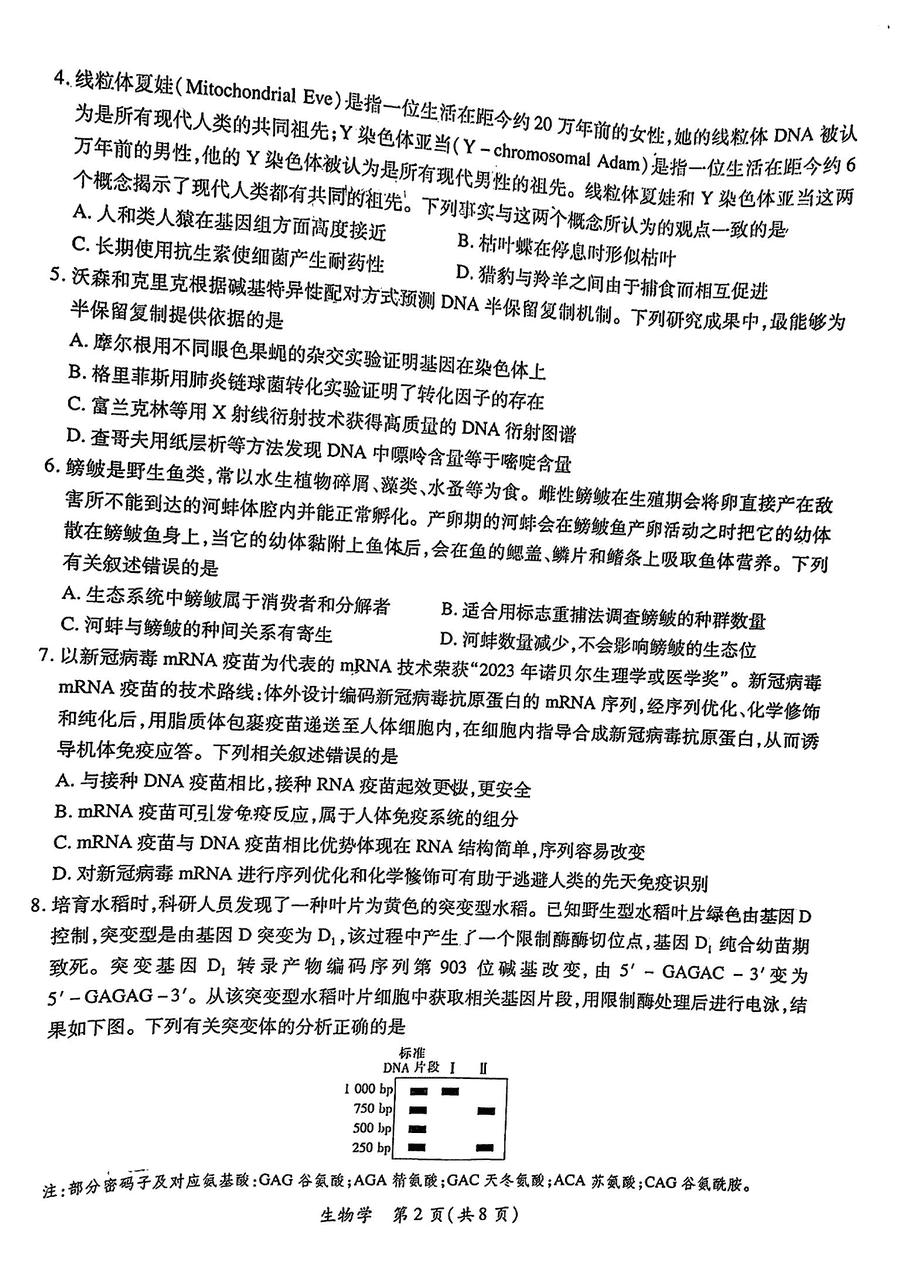 4. 线粒体夏娃(Mitochondrial Eve)是指一位生活在距今约20万年前的女性,她的线粒体DNA被认
为是所有现代人类的共同祖先;Y染色体亚当(Y-chromosomal Adam)是指一位生活在距今约6
万年前的男性,他的Y染色体被认为是所有现代男性的祖先。线粒体夏娃和Y染色体亚当这两
个概念揭示了现代人类都有共同的祖先。下列事实与这两个概念所认为的观点一致的是
A. 人和类人猿在基因组方面高度接近 B. 枯叶蝶在停息时形似枯叶
C. 长期使用抗生素使细菌产生耐药性 D. 猎豹与羚羊之间由于捕食而相互促进
5. 沃森和克里克根据碱基特异性配对方式预测DNA半保留复制机制。下列研究成果中,最能够为
半保留复制提供依据的是
A. 摩尔根用不同眼色果蝇的杂交实验证明基因在染色体上
B. 格里菲斯用肺炎链球菌转化实验证明了转化因子的存在
C. 富兰克林等用X射线衍射技术获得高质量的DNA衍射图谱
D. 查哥夫用纸层析等方法发现DNA中嘌呤含量等于嘧啶含量
6. 鳑鲏是野生鱼类,常以水生植物碎屑、藻类、水蚤等为食。雌性鳑鲏在生殖期会将卵直接产在敌
害所不能到达的河蚌体腔内并能正常孵化。产卵期的河蚌会在鳑鲏鱼产卵活动之时把它的幼体
散在鳑鲏鱼身上,当它的幼体黏附上鱼体后,会在鱼的鳃盖、鳞片和鳍条上吸取鱼体营养。下列
有关叙述错误的是
A. 生态系统中鳑鲏属于消费者和分解者 B. 适合用标志重捕法调查鳑鲏的种群数量
C. 河蚌与鳑鲏的种间关系有寄生 D. 河蚌数量减少,不会影响鳑鲏的生态位
7. 以新冠病毒mRNA疫苗为代表的mRNA技术荣获“2023年诺贝尔生理学或医学奖”。新冠病毒
mRNA疫苗的技术路线:体外设计编码新冠病毒抗原蛋白的mRNA序列,经序列优化、化学修饰
和纯化后,用脂质体包裹疫苗递送至人体细胞内,在细胞内指导合成新冠病毒抗原蛋白,从而诱
导机体免疫应答。下列相关叙述错误的是
A. 与接种DNA疫苗相比,接种RNA疫苗起效更快,更安全
B. mRNA疫苗可引发免疫反应,属于人体免疫系统的组分
C. mRNA疫苗与DNA疫苗相比优势体现在RNA结构简单,序列容易改变
D. 对新冠病毒mRNA进行序列优化和化学修饰可有助于逃避人类的先天免疫识别
8. 培育水稻时,科研人员发现了一种叶片为黄色的突变型水稻。已知野生型水稻叶片绿色由基因D
控制,突变型是由基因D突变为D₁,该过程中产生了一个限制酶酶切位点,基因D₁纯合幼苗期
致死。突变基因D₁转录产物编码序列第903位碱基改变,由5′-GAGAC-3′变为
5′-GAGAG-3′。从该突变型水稻叶片细胞中获取相关基因片段,用限制酶处理后进行电泳,结
果如下图。下列有关突变体的分析正确的是
标准
DNA片段 Ⅰ Ⅱ
1 000 bp
750 bp
500 bp
250 bp
注:部分密码子及对应氨基酸:GAG谷氨酸;AGA精氨酸;GAC天冬氨酸;ACA苏氨酸;CAG谷氨酰胺。
生物学 第2页(共8页)